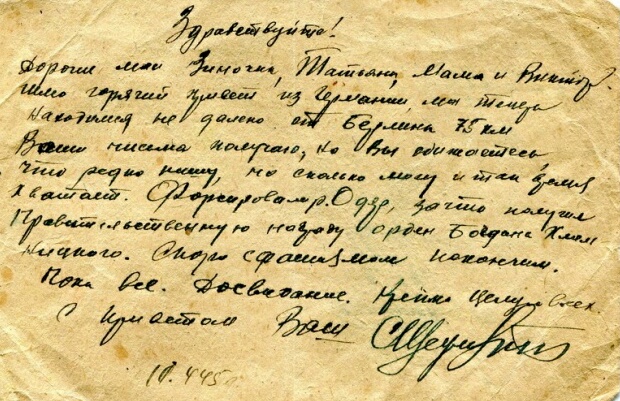 Здравствуйте!
Дорогие мои Зиночка, Татьяна, Мама и Виктор.
шлю горячий привет из Германии, мы теперь
находимся не далеко от Берлина 75 км
Ваши письма получаю, но Вы обижаетесь,
что редко пишу, но сколько могу и так время
хватает. Форсировал р. Одер, за что получил
Правительственную награду орден Богдана Хмель
ницкого. Скоро с фашизмом покончим.
Пока все. Досвидание. Крепко целую всех.
С приветом Ваш
10.4.45